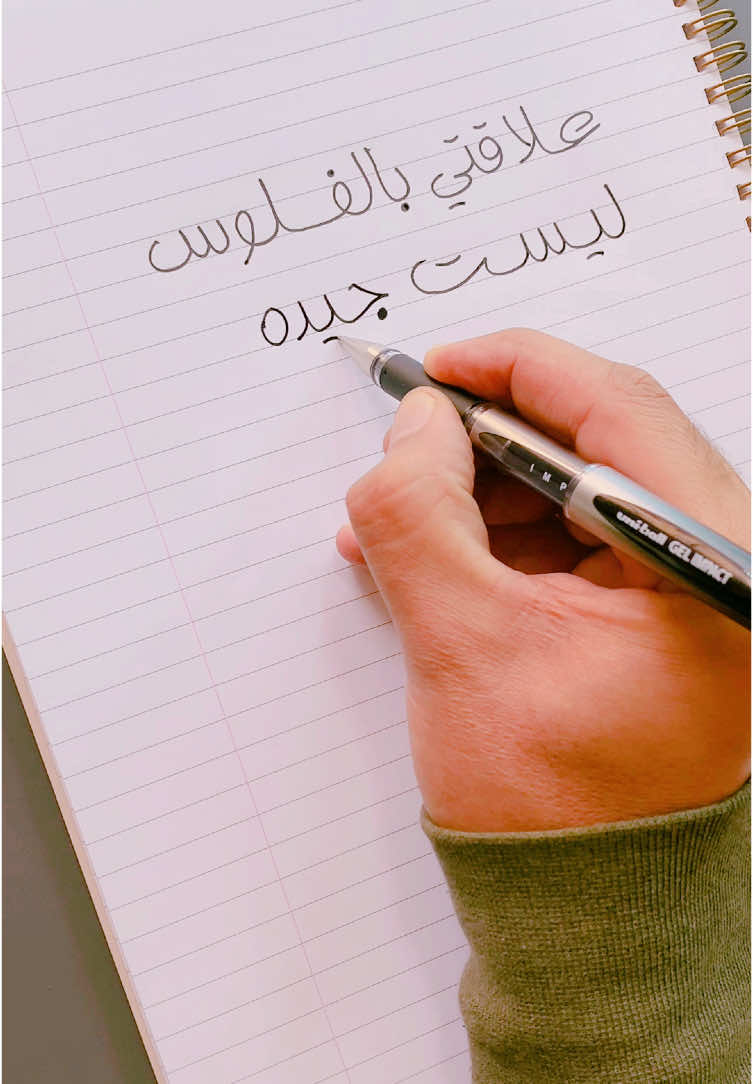 علاقتي بالفلوس
ليست جيده
IMP
uniball GEL IMPACT